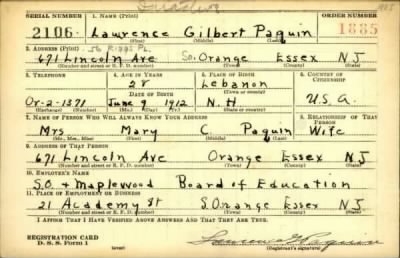 SERIAL NUMBER 1. NAME (Print) ORDER NUMBER
2106 Lawrence Gilbert Paquin 1885
(First) (Middle) (Last)
2. ADDRESS (Print) 56 Riggs Pl.
671 Lincoln Ave So. Orange Essex NJ
(Number and street or R. F. D. number) (Town) (County) (State)
3. TELEPHONE 4. AGE IN YEARS 5. PLACE OF BIRTH 6. COUNTRY OF CITIZENSHIP
28 Lebanon
DATE OF BIRTH (Town or county)
Or-2-1371 June 9 1912 N.H U.S.A.
(Exchange) (Number) (Mo.) (Day) (Yr.) (State or country)
7. NAME OF PERSON WHO WILL ALWAYS KNOW YOUR ADDRESS 8. RELATIONSHIP OF THAT PERSON
Mrs Mary C. Paquin Wife
(Mr., Mrs., Miss) (First) (Middle) (Last)
9. ADDRESS OF THAT PERSON
671 Lincoln Ave Orange Essex NJ
(Number and street or R. F. D. number) (Town) (County) (State)
10. EMPLOYER'S NAME
S.O. + Maplewood Board of Education
11. PLACE OF EMPLOYMENT OR BUSINESS
21 Academy St S. Orange Essex NJ
(Number and street or R. F. D. number) (Town) (County) (State)
I AFFIRM THAT I HAVE VERIFIED ABOVE ANSWERS AND THAT THEY ARE TRUE.
REGISTRATION CARD
D. S. S. Form 1 (Registrant's signature)